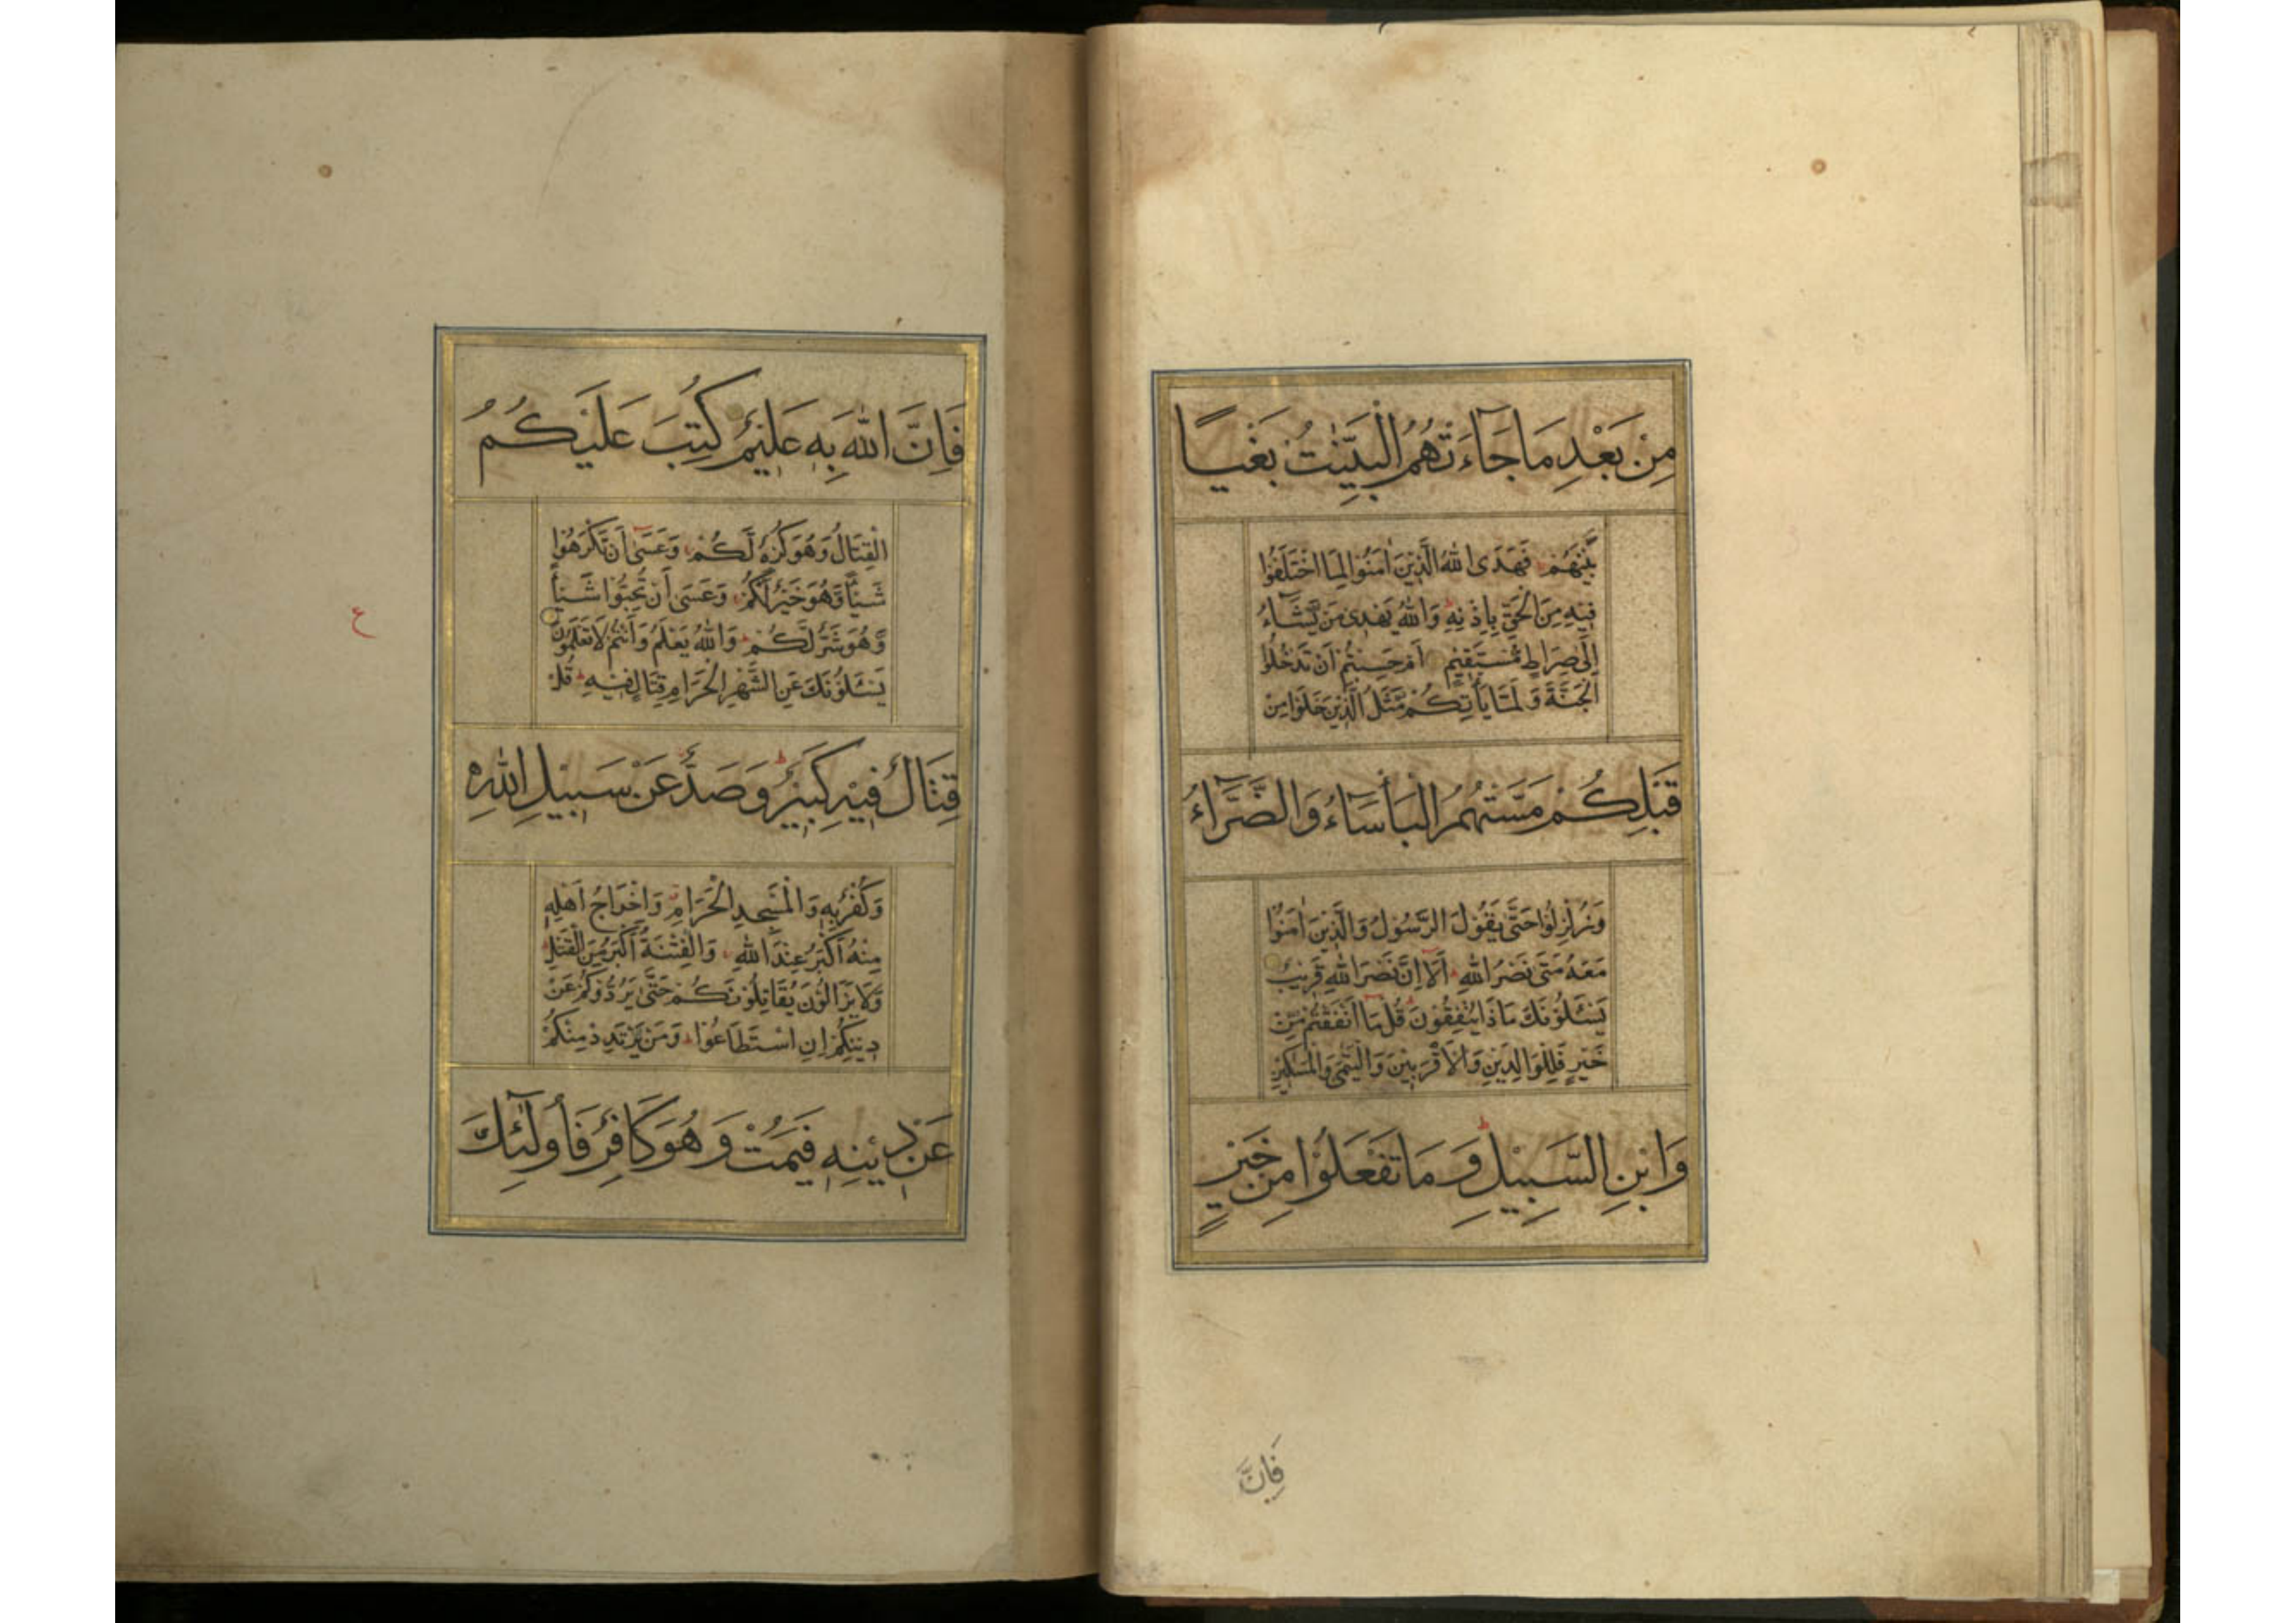 مِنْ بَعْدِ مَا جَآءَتْهُمُ الْبَيِّنٰتُ بَغْيًا
بَيْنَهُمْ فَهَدَى اللّٰهُ الَّذِيْنَ اٰمَنُوْا لِمَا اخْتَلَفُوْا
فِيْهِ مِنَ الْحَقِّ بِاِذْنِهٖ وَاللّٰهُ يَهْدِىْ مَنْ يَّشَآءُ
اِلٰى صِرَاطٍ مُّسْتَقِيْمٍ اَمْ حَسِبْتُمْ اَنْ تَدْخُلُوا
الْجَنَّةَ وَلَمَّا يَأْتِكُمْ مَّثَلُ الَّذِيْنَ خَلَوْا مِنْ
قَبْلِكُمْ مَسَّتْهُمُ الْبَأْسَآءُ وَالضَّرَّآءُ
وَزُلْزِلُوْا حَتّٰى يَقُوْلَ الرَّسُوْلُ وَالَّذِيْنَ اٰمَنُوْا
مَعَهٗ مَتٰى نَصْرُ اللّٰهِ اَلَآ اِنَّ نَصْرَ اللّٰهِ قَرِيْبٌ
يَسْـَٔلُوْنَكَ مَاذَا يُنْفِقُوْنَ قُلْ مَآ اَنْفَقْتُمْ مِّنْ
خَيْرٍ فَلِلْوَالِدَيْنِ وَالْاَقْرَبِيْنَ وَالْيَتٰمٰى وَالْمَسٰكِيْنِ
وَابْنِ السَّبِيْلِ وَمَا تَفْعَلُوْا مِنْ خَيْرٍ
فَاِنَّ
فَاِنَّ اللّٰهَ بِهٖ عَلِيْمٌ كُتِبَ عَلَيْكُمُ
الْقِتَالُ وَهُوَ كُرْهٌ لَّكُمْ وَعَسٰٓى اَنْ تَكْرَهُوْا
شَيْـًٔا وَّهُوَ خَيْرٌ لَّكُمْ وَعَسٰى اَنْ تُحِبُّوْا شَيْـًٔا
وَّهُوَ شَرٌّ لَّكُمْ وَاللّٰهُ يَعْلَمُ وَاَنْتُمْ لَا تَعْلَمُوْنَ
ع
يَسْـَٔلُوْنَكَ عَنِ الشَّهْرِ الْحَرَامِ قِتَالٍ فِيْهِ قُلْ
قِتَالٌ فِيْهِ كَبِيْرٌ وَصَدٌّ عَنْ سَبِيْلِ اللّٰهِ
وَكُفْرٌ بِهٖ وَالْمَسْجِدِ الْحَرَامِ وَاِخْرَاجُ اَهْلِهٖ
مِنْهُ اَكْبَرُ عِنْدَ اللّٰهِ وَالْفِتْنَةُ اَكْبَرُ مِنَ الْقَتْلِ
وَلَا يَزَالُوْنَ يُقَاتِلُوْنَكُمْ حَتّٰى يَرُدُّوْكُمْ عَنْ
دِيْنِكُمْ اِنِ اسْتَطَاعُوْا وَمَنْ يَّرْتَدِدْ مِنْكُمْ
عَنْ دِيْنِهٖ فَيَمُتْ وَهُوَ كَافِرٌ فَأُولٰٓئِكَ